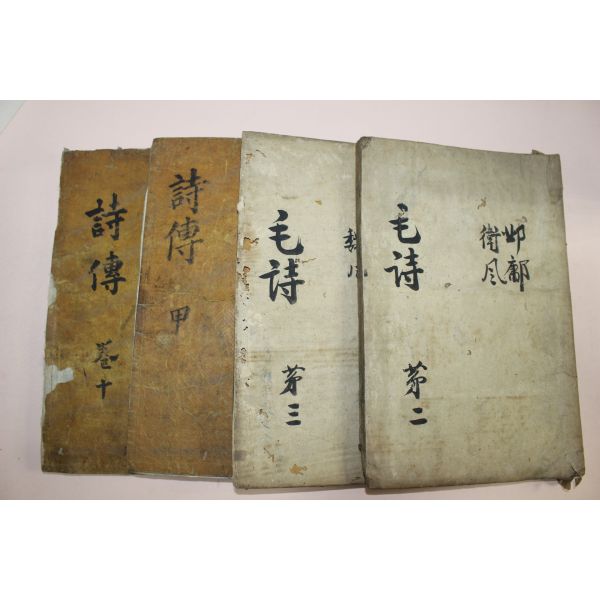 詩傳
卷十
詩傳
甲
毛詩
第三
毛詩
邶鄘
衛風
第二